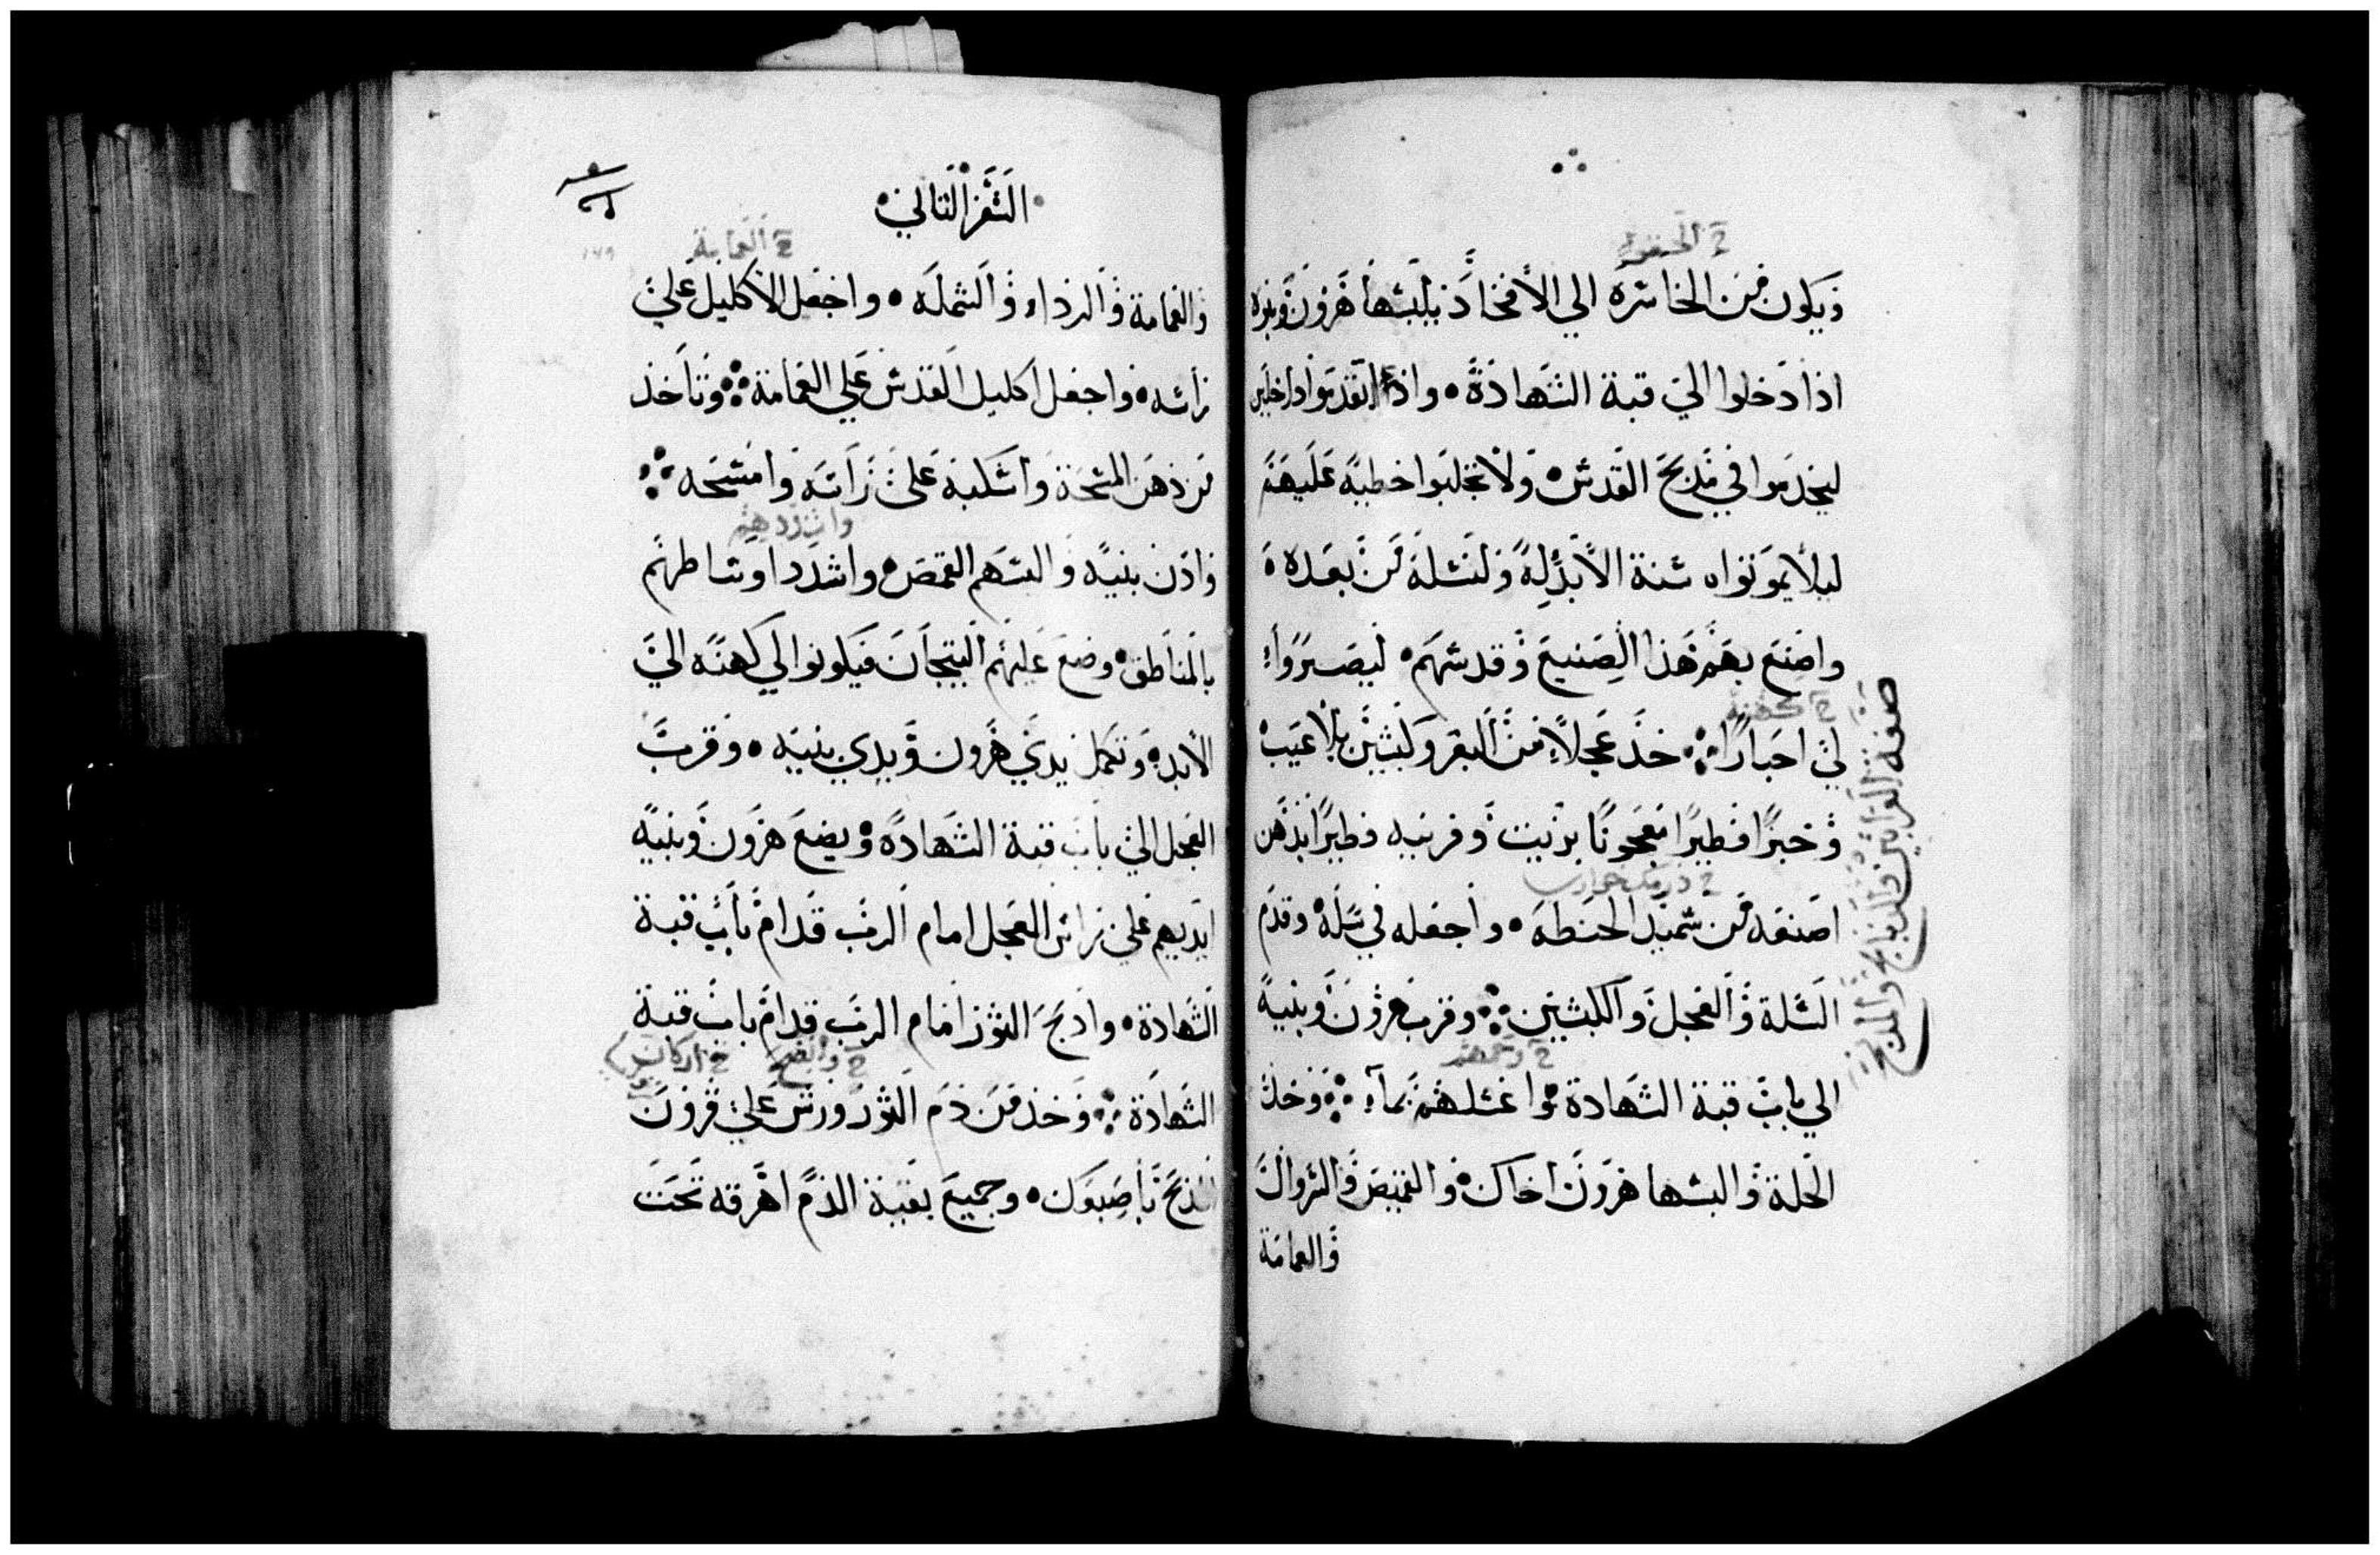 ويكون من الخاسره الي الأفخاذ يلبسها هرون وبنوه
اذا دخلوا الي قبة الشهادة واذا تقدموا داخلين
ليخدموا في مذبح القدس ولا يجلبوا خطية عليهم
ليلا يموتوا سنة الأبد له ولنسله من بعده
واصنع بهم هذا الصنيع وقدسهم ليصيروا
لي احبارًا خذ عجلاً من البقر وكبشين بلا عيب
وخبزًا فطيرًا معجونًا بزيت وفرنيه فطيرًا بدهن
اصنعه من سميد الحنطه واجعله في سلة وقدم
السلة والعجل والكبشين وقرب هرون وبنيه
الي باب قبة الشهادة واغسلهم بماء وخذ
الحلة والبسها هرون اخاك والقميص والسروال
والعمامة
صنعة القرابين والذبايح والمذبح
السفر التاني
والعمامة والرداء والشمله واجعل الأكليل علي
راسه واجعل اكليل القدس علي العمامة وتاخذ
من دهن المسحة واسكبه علي راسه وامسحه
وادن بنيه والبسهم القمص واشدد اوساطهم
بالمناطق وضع عليهم التيجان فيكونوا لي كهنه الي
الأبد وتكمل يدي هرون ويدي بنيه وقرب
العجل الي باب قبة الشهادة ويضع هرون وبنيه
ايديهم علي راس العجل امام الرب قدام باب قبة
الشهادة واذبح الثور امام الرب قدام باب قبة
الشهادة وخذ من دم الثور ورش علي قرون
المذبح باصبعك وجميع بقية الدم اهرقه تحت